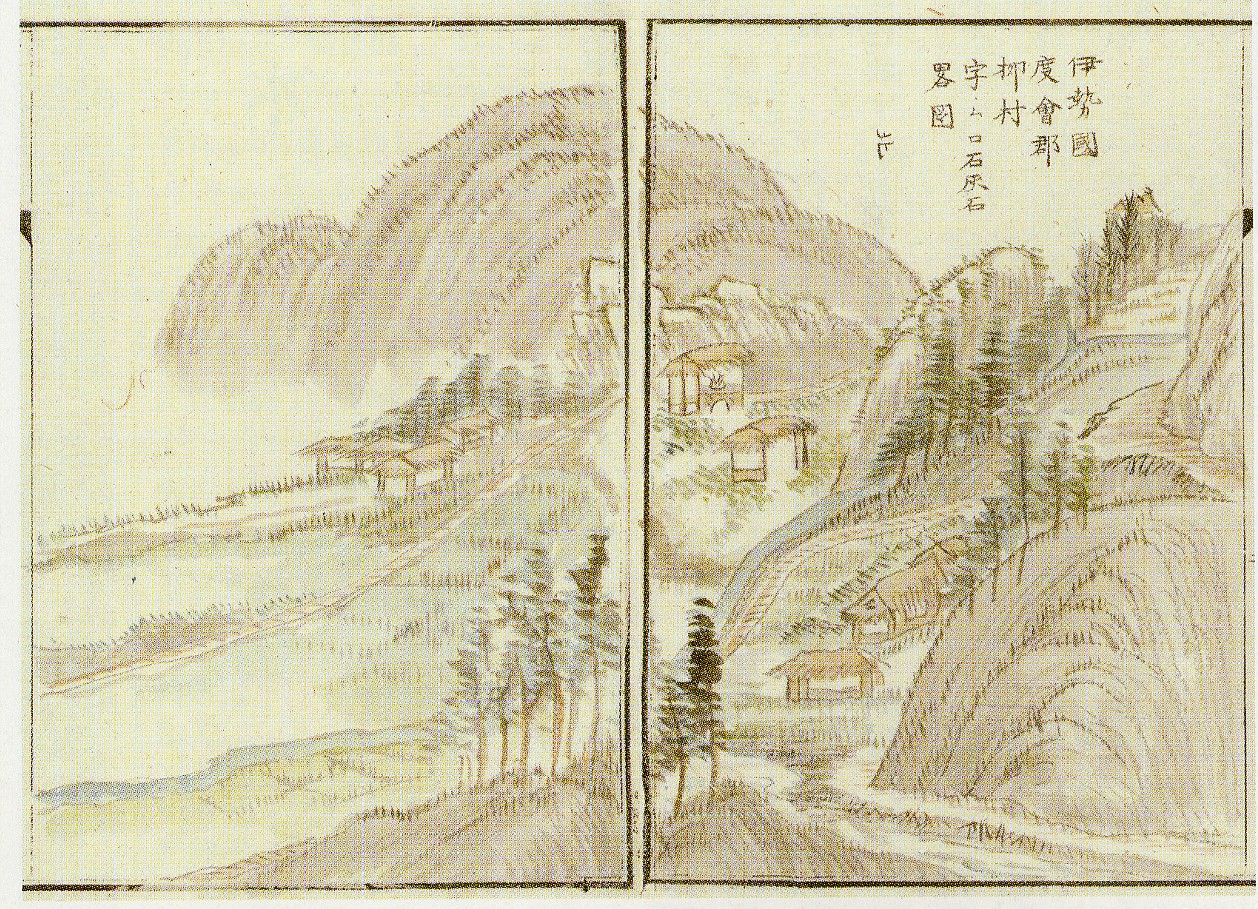 伊勢國
度會郡
柳村
字ムロ石灰石
畧図
北